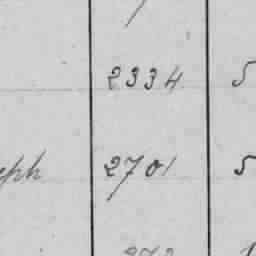 2334 5
eph 2701 5